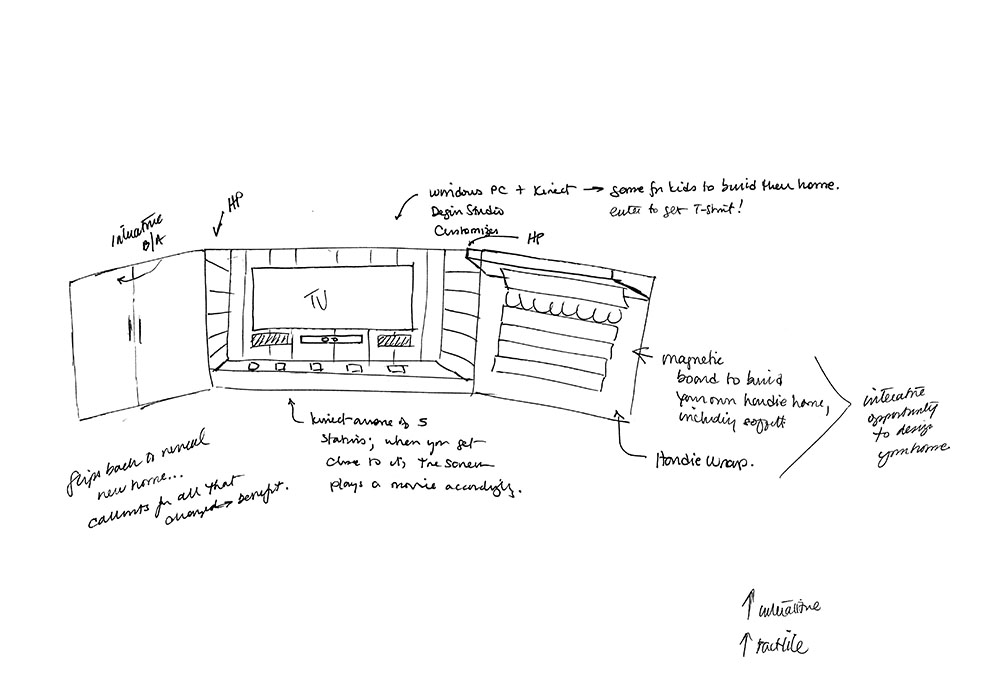 HP
Interactive
B/A
windows PC + Kinect → game for kids to build their home.
Design Studio
enter to get T-shirt!
Customizer
HP
TV
magnetic
board to build
your own hardie home,
including soffit
interactive
opportunity
to design
your home
Hardie Wrap.
Kinect at one of 5
stations; when you get
close to it, the screen
plays a movie accordingly.
flips back to reveal
new home...
callouts for all that
changed → benefit.
↑ interactive
↑ tactile